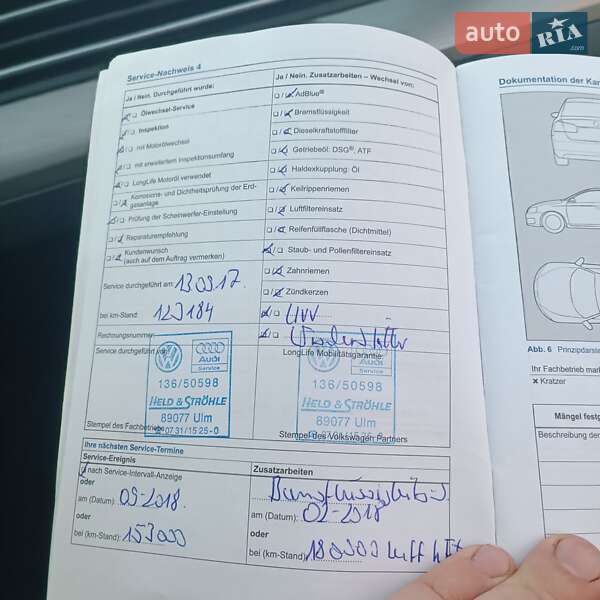 auto RIA .com
Service-Nachweis 4
Ja / Nein. Durchgeführt wurde:
Ölwechsel-Service
Inspektion
mit Motorölwechsel
mit erweitertem Inspektionsumfang
LongLife Motoröl verwendet
Korrosions- und Dichtheitsprüfung der Erd-
gasanlage
Prüfung der Scheinwerfer-Einstellung
Reparaturempfehlung
Kundenwunsch
(auch auf dem Auftrag vermerken)
Service durchgeführt am: 13 09 17.
bei km-Stand: 123 184
Rechnungsnummer:
Service durchgeführt von:
Audi
Service
136/50598
HELD & STRÖHLE
89077 Ulm
0731/1525-0
Stempel des Fachbetriebs
Ja / Nein. Zusatzarbeiten – Wechsel von:
AdBlue®
Bremsflüssigkeit
Dieselkraftstofffilter
Getriebeöl: DSG®, ATF
Haldexkupplung: Öl
Keilrippenriemen
Luftfiltereinsatz
Reifenfüllflasche (Dichtmittel)
Staub- und Pollenfiltereinsatz
Zahnriemen
Zündkerzen
UVV
LongLife Mobilitätsgarantie:
Audi
Service
136/50598
HELD & STRÖHLE
89077 Ulm
Stempel des Volkswagen Partners
Ihre nächsten Service-Termine
Service-Ereignis
nach Service-Intervall-Anzeige
oder
am (Datum): 09-2018.
oder
bei (km-Stand): 153000
Zusatzarbeiten
am (Datum): 02-2018
oder
bei (km-Stand): 180000
Dokumentation der Kar
Abb. 6 Prinzipdarste
Ihr Fachbetrieb mar
× Kratzer
Mängel festg
Beschreibung der